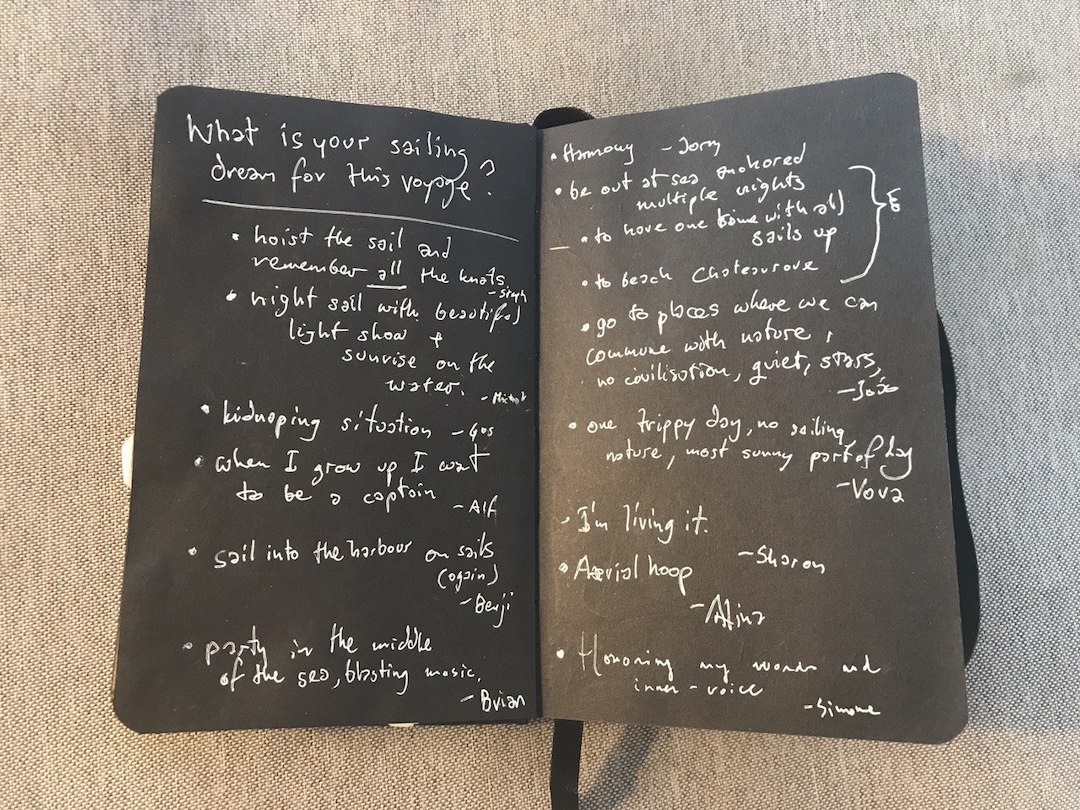 What is your sailing
dream for this voyage?
• hoist the sail and
remember all the knots
- Steph
• night sail with beautiful
light show +
sunrise on the
water.
• kidnaping situation - Gos
• when I grow up I want
to be a captain
- Alf
• sail into the harbour on sails
(again)
- Benji
• party in the middle
of the sea, blasting music.
- Brian
• Harmony - Jorn
• be out at sea anchored
multiple nights
• to have one time with all
sails up
• to beach
• go to places where we can
commune with nature,
no civilisation, quiet, stars,
- João
• one trippy day, no sailing,
nature, most sunny part of day
- Vova
- I'm living it.
- Sharon
• Aerial hoop
- Afina
• Honoring my and
inner-voice
- Simone